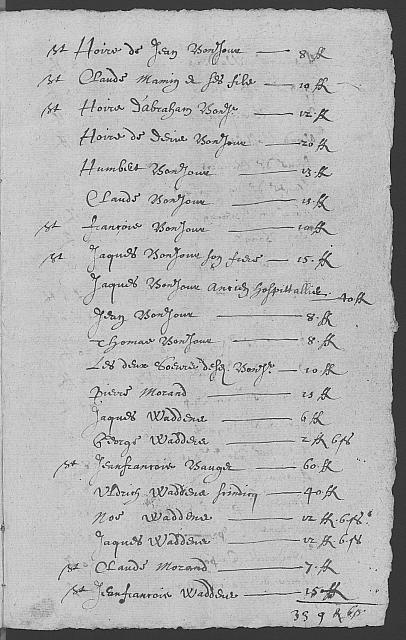 st Hoire de Jean BonJour — 8 ff
st Claude Mamin & ses filz — 10 ff
st Hoire d'Abraham BonJr — 12 ff
Hoire de BonJour — 20 ff
Humbert BonJour — 13 ff
Claude BonJour — 11 ff
st francois BonJour — 10 ff
st Jaques BonJour son frere — 15 ff
Jaques BonJour Ancien hospittallier — 40 ff
Jean BonJour — 8 ff
Thomas BonJour — 8 ff
Les deux BonJr — 10 ff
pierre Morand — 11 ff
Jaques Waddens — 6 ff
George Waddens — 2 ff 6 fs
st Jeanfrancois — 60 ff
Uldrich Waddens — 40 ff
Noe Waddens — 12 ff 6 fs
Jaques Waddens — 12 ff 6 fs
st Claude Morand — 7 ff
st Jeanfrancois Waddens — 15 ff